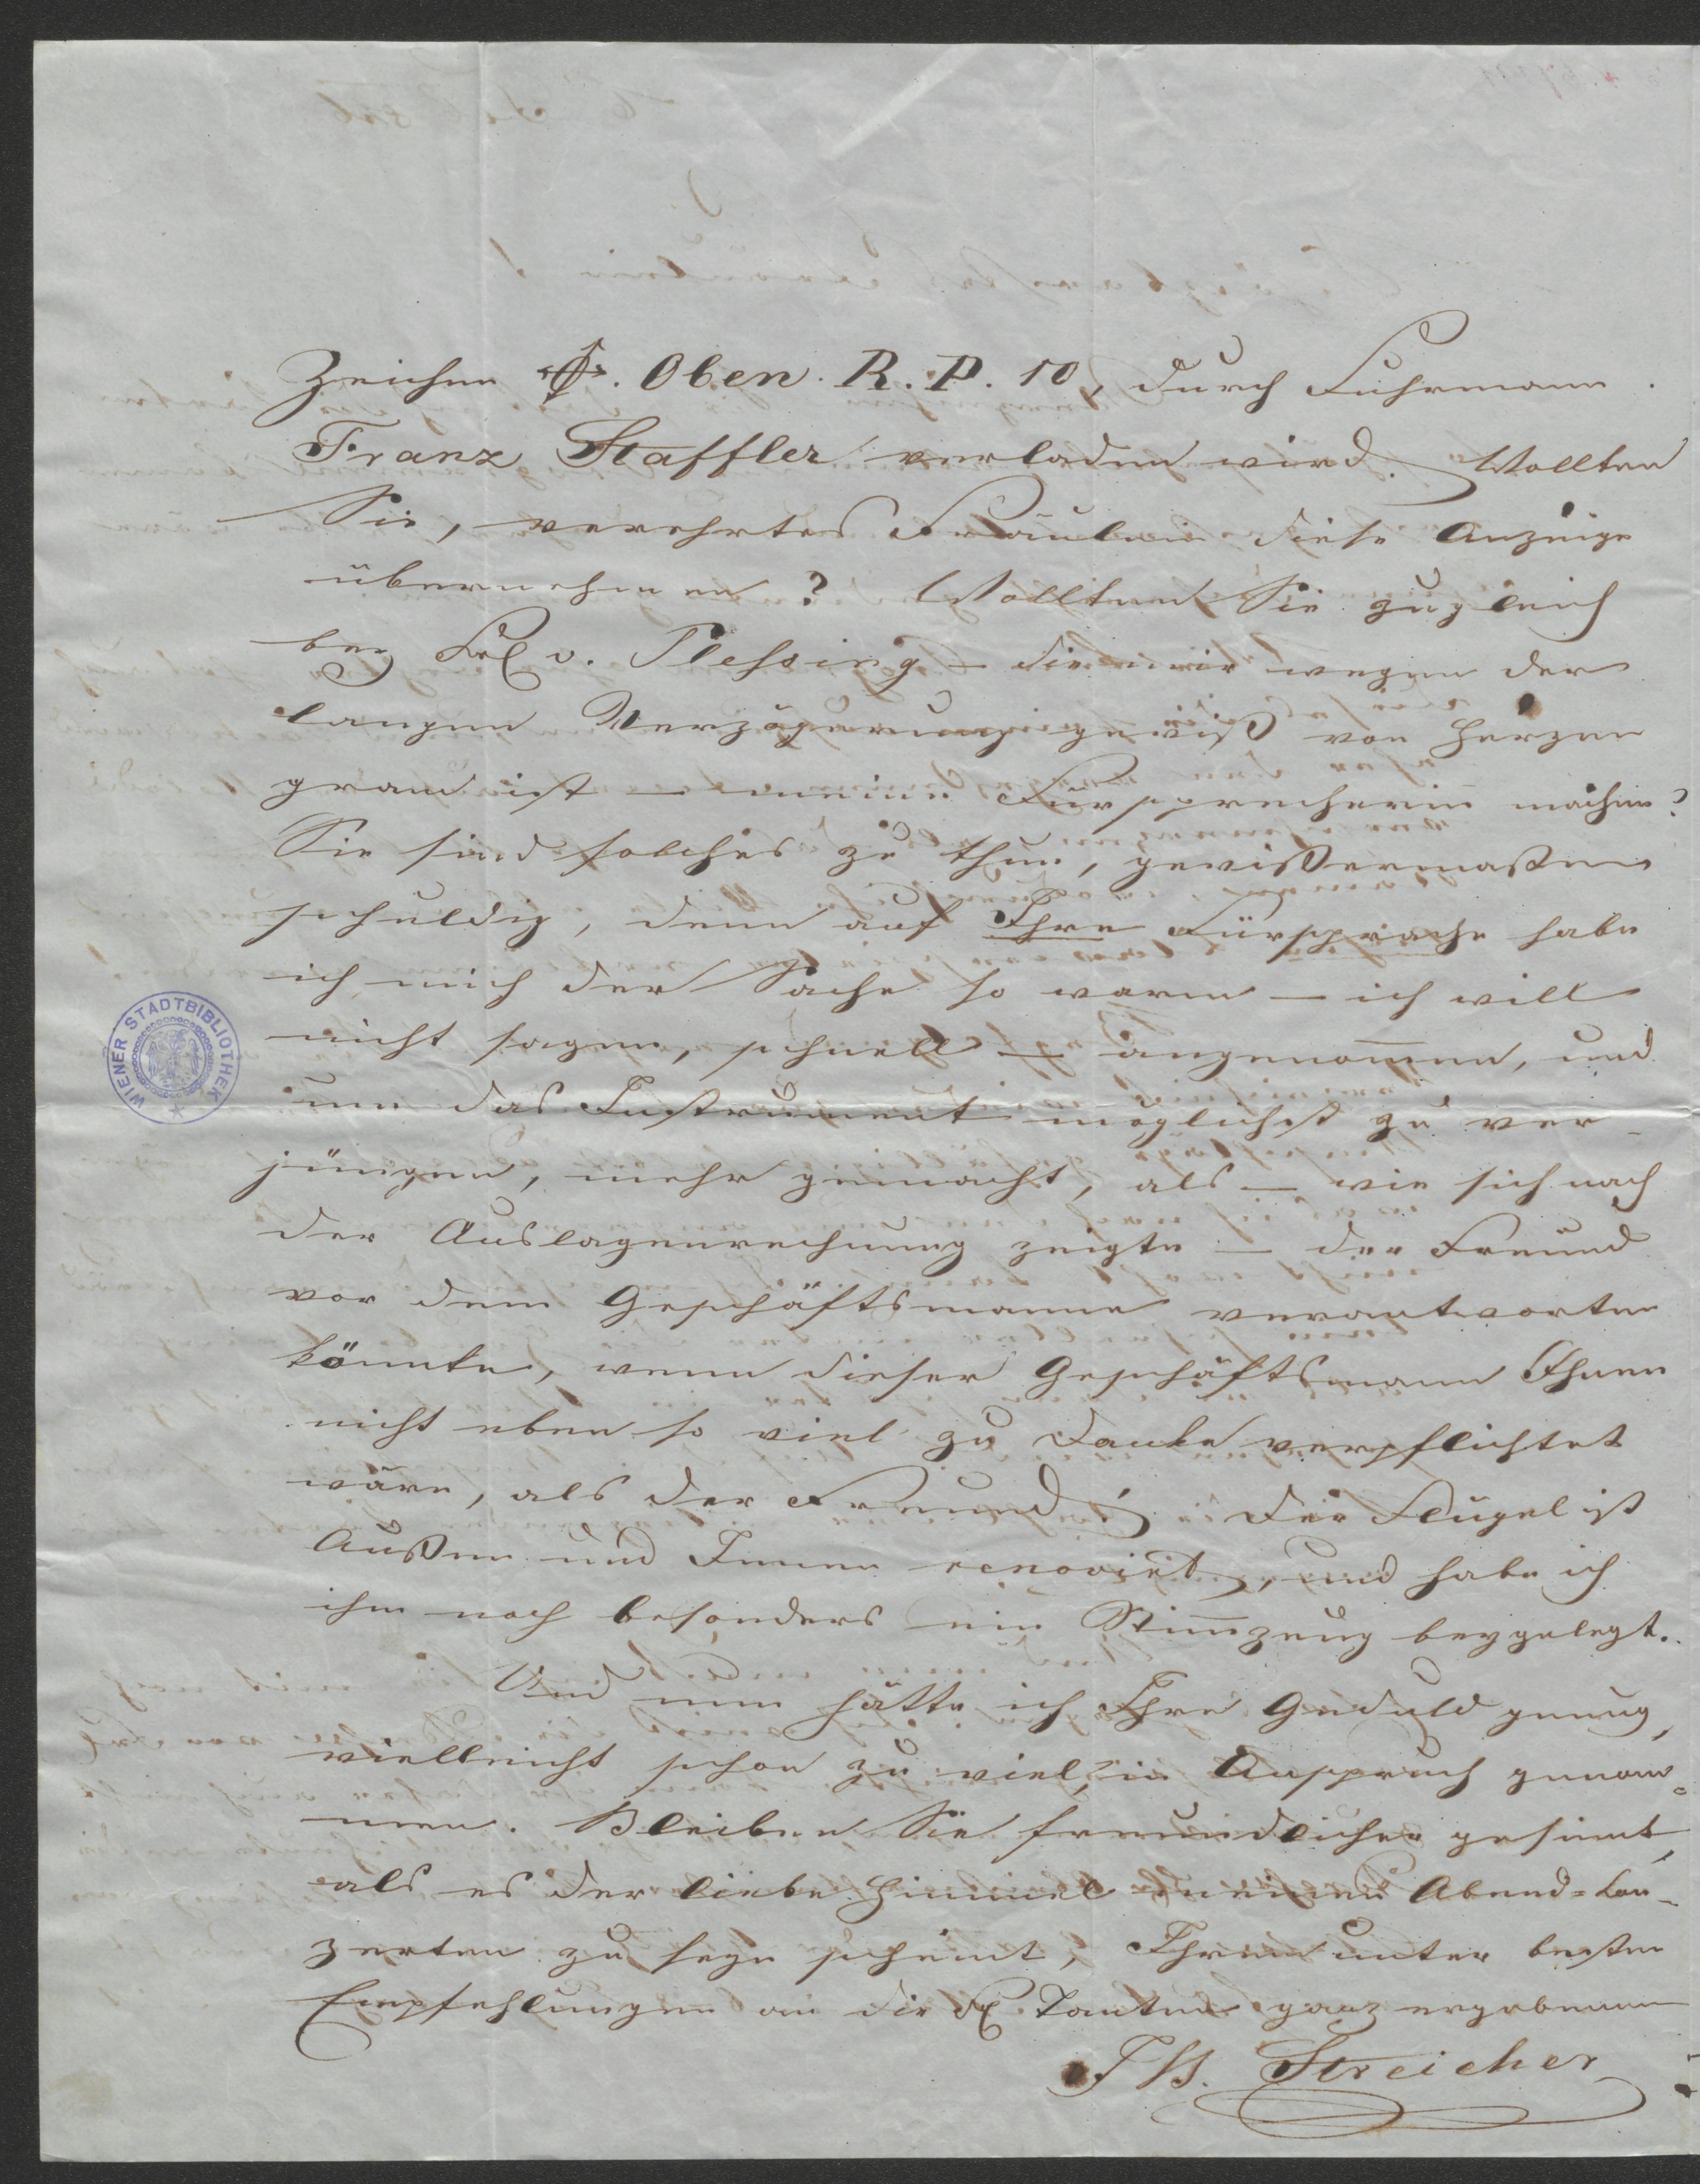 Zeichen . Oben. R. P. 10, durch Fuhrmann
Franz Staffler verladen wird. Wollten
Sie, verehrtes Fräulein diese Anzeige
übernehmen? Wollten Sie zugleich
bey Frl v. Plessing – die mir wegen der
langen Verzögerung gewiß von Herzen
gram ist – meine Fürsprecherin machen?
Sie sind solches zu thun, gewißermaßen
schuldig, denn auf Ihre Fürsprache habe
ich mich der Sache so warm – ich will
nicht sagen, schnell – angenom̄en, und
um das Instrument möglichst zu ver-
jüngen, mehr gemacht, als – wie sich nach
der Auslagenrechnung zeigte – der Freund
vor dem Geschäftsmanne verantworten
könnte, wenn dieser Geschäftsmann Ihnen
nicht eben so viel zu Danke verpflichtet
wäre, als der Freund. Der Flügel ist
Außen und Innen renovirt, und habe ich
ihm noch besonders ein Stim̄zeug beygelegt.
Und nun hätte ich Ihre Geduld genug,
vielleicht schon zu viel, in Anspruch genom=
men. Bleiben Sie freundlicher gesinnt,
als es der liebe Himmel meinen Abend=Con-
zerten zu seyn scheint, Ihrem unter besten
Empfehlungen an die Tanten ganz ergebenen
JB. Streicher
WIENER STADTBIBLIOTHEK